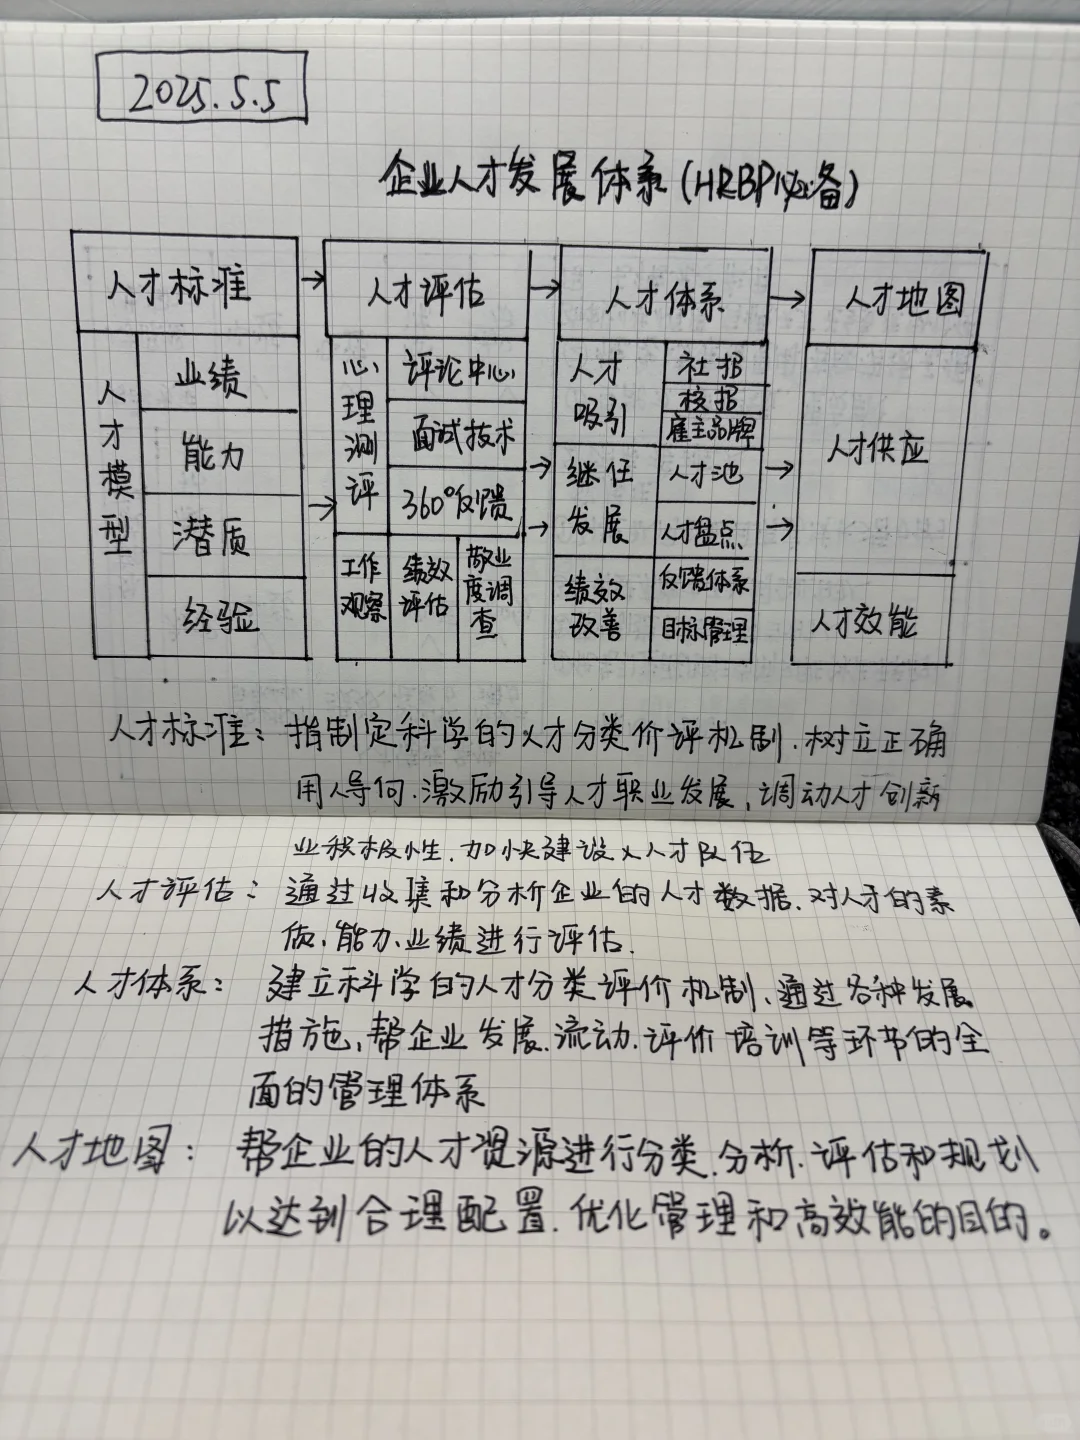 2025.5.5
企业人才发展体系(HRBP必备)
人才标准 → 人才评估 → 人才体系 → 人才地图
人才模型
业绩
能力
潜质
经验
心理测评
评论中心
面试技术
360°反馈
工作观察
绩效评估
敬业度调查
人才吸引
社招
校招
雇主品牌
继任发展
人才池
人才盘点
绩效改善
反馈体系
目标管理
人才供应
人才效能
人才标准：指制定科学的人才分类价评机制、树立正确
用人导向、激励引导人才职业发展、调动人才创新
业积极性、加快建设人才队伍
人才评估：通过收集和分析企业的人才数据、对人才的素
质、能力、业绩进行评估.
人才体系：建立科学的人才分类评价机制、通过各种发展
措施、帮企业发展、流动、评价培训等环节的全
面的管理体系
人才地图：帮企业的人才资源进行分类、分析、评估和规划
以达到合理配置、优化管理和高效能的目的。